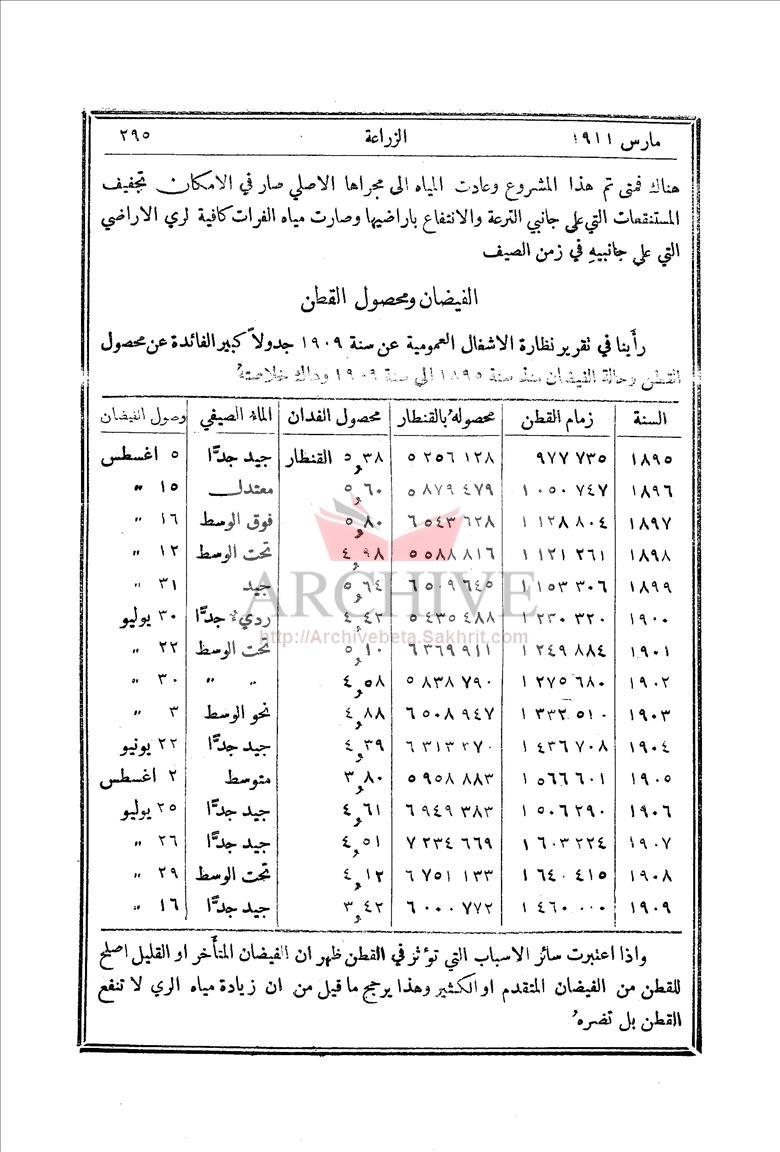 مارس ١٩١١ الزراعة ٢٩٥
هناك فمتى تم هذا المشروع وعادت المياه الى مجراها الاصلي صار في الامكان تجفيف
المستنقعات التي على جانبي الترعة والانتفاع باراضيها وصارت مياه الفرات كافية لري الاراضي
التي على جانبيهِ في زمن الصيف
الفيضان ومحصول القطن
رأينا في تقرير نظارة الاشغال العمومية عن سنة ١٩٠٩ جدولاً كبير الفائدة عن محصول
القطن وحالة الفيضان منذ سنة ١٨٩٥ الى سنة ١٩٠٩ وهاك خلاصتهُ
السنة زمام القطن محصولهُ بالقنطار محصول الفدان الماء الصيفي وصول الفيضان
١٨٩٥ ٩٧٧ ٧٣٥ ٥ ٢٥٦ ١٢٨ ٥,٣٨ القنطار جيد جدًّا ٥ اغسطس
١٨٩٦ ١ ٠٥٠ ٧٤٧ ٥ ٨٧٩ ٤٧٩ ٥,٦٠ معتدل ١٥ "
١٨٩٧ ١ ١٢٨ ٨٠٤ ٦ ٥٤٣ ٦٢٨ ٥,٨٠ فوق الوسط ١٦ "
١٨٩٨ ١ ١٢١ ٢٦١ ٥ ٥٨٨ ٨١٦ ٤,٩٨ تحت الوسط ١٢ "
١٨٩٩ ١ ١٥٣ ٣٠٦ ٦ ٥٠٩ ٦٤٥ ٥,٦٤ جيد ٣١ "
١٩٠٠ ١ ٢٣٠ ٣٢٠ ٥ ٤٣٥ ٤٨٨ ٤,٤٢ رديء جدًّا ٣٠ يوليو
١٩٠١ ١ ٢٤٩ ٨٨٤ ٦ ٣٦٩ ٩١١ ٥,١٠ تحت الوسط ٢٢ "
١٩٠٢ ١ ٢٧٥ ٦٨٠ ٥ ٨٣٨ ٧٩٠ ٤,٥٨ " " ٣٠ "
١٩٠٣ ١ ٣٣٢ ٥١٠ ٦ ٥٠٨ ٩٤٧ ٤,٨٨ نحو الوسط ٣ "
١٩٠٤ ١ ٤٣٦ ٧٠٨ ٦ ٣١٣ ٣٧٠ ٤,٣٩ جيد جدًّا ٢٢ يونيو
١٩٠٥ ١ ٥٦٦ ٦٠١ ٥ ٩٥٨ ٨٨٣ ٣,٨٠ متوسط ٢ اغسطس
١٩٠٦ ١ ٥٠٦ ٢٩٠ ٦ ٩٤٩ ٣٨٣ ٤,٦١ جيد جدًّا ٢٥ يوليو
١٩٠٧ ١ ٦٠٣ ٢٢٤ ٧ ٢٣٤ ٦٦٩ ٤,٥١ جيد جدًّا ٢٦ "
١٩٠٨ ١ ٦٤٠ ٤١٥ ٦ ٧٥١ ١٣٣ ٤,١٢ تحت الوسط ٢٩ "
١٩٠٩ ١ ٤٦٠ ٠٠٠ ٦ ٠٠٠ ٧٧٢ ٣,٤٢ جيد جدًّا ١٦ "
واذا اعتبرت سائر الاسباب التي تؤثر في القطن ظهر ان الفيضان المتأخر او القليل اصلح
للقطن من الفيضان المتقدم او الكثير وهذا يرجح ما قيل من ان زيادة مياه الري لا تنفع
القطن بل تضرهُ
ARCHIVE
http://Archivebeta.Sakhrit.com